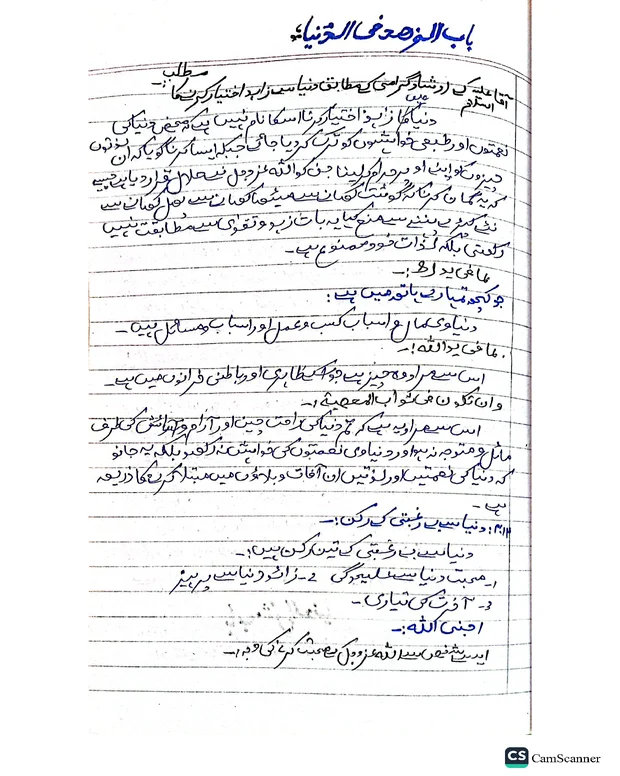 باب الزهد في الدنيا:
آقا علیہ السلام کے ارشاد گرامی کے مطابق دنیا سے زاہد اختیار کرنے کا مطلب:۔
دنیا کا زہد اختیار کرنا اسکا نام نہیں ہے کہ محض دنیا کی
نعمتوں اور طبعی خواہشوں کو ترک کر دیا جائے جبکہ ایسا کرنا گویا کہ ان
چیزوں کو اپنے اوپر حرام کر لینا جن کو اللہ عزوجل نے حلال قرار دیا ہے جیسے
کہ یہ گمان کرنا کہ گوشت کھانے سے میٹھا کھانے سے پھل کھانے سے
نئے کپڑے پہننے سے منع کیا یہ بات زہد و تقوی سے مطابقت نہیں
رکھتی بلکہ بذات خود ممنوع ہے۔
بما في يدك:۔
جو کچھ تمہارے ہاتھ میں ہے:
دنیاوی مال و اسباب کسب و عمل اور اسباب وسائل ہیں۔
بما في يد الله:۔
اس سے مراد وہ چیز ہے جو اسکے ظاہری اور باطنی خزانوں میں ہے۔
وان تكون في ثواب المعصية:۔
اس سے مراد یہ ہے کہ تم دنیا کی راحت چین اور آرام و آسائش کی طرف
مائل و متوجہ نہ ہو اور دنیاوی نعمتوں کی خواہش نہ رکھو بلکہ یہ جانو
کہ دنیا کی نعمتیں اور لذتیں ان آفات و بلاؤں میں مبتلا کرنے کا ذریعہ
ہے۔
دنیا سے بے رغبتی کے رکن:۔
دنیا سے بے رغبتی کے تین رکن ہیں:۔
1۔ محبت دنیا سے علیحدگی 2۔ زائد دنیا سے پرہیز
3۔ آخرت کی تیاری۔
احبني الله:۔
ایسے شخص سے اللہ عزوجل کے محبت کرنے کی وجہ:۔
CS CamScanner